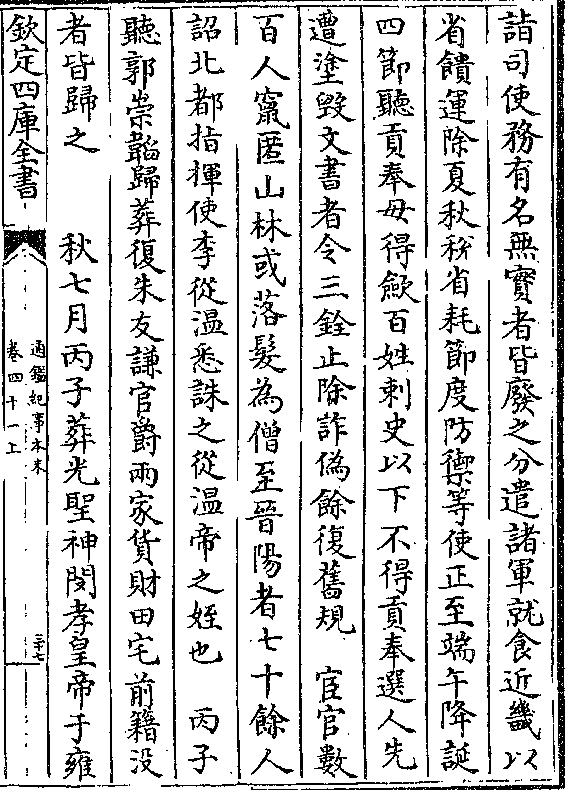 諸司使務有名無實者皆廢之分遣諸軍就食近畿以
省饋運除夏秋稅省耗節度防禦等使正至端午降誕
四節聽貢奉毋得歛百姓刺史以下不得貢奉選人先
遭塗毀文書者令三銓止除詐偽餘復舊規　宦官數
百人竄匿山林或落髮為僧至晉陽者七十餘人
詔北都指揮使李從温悉誅之從温帝之姪也　丙子
聽郭崇韜歸葬復朱友謙官爵兩家貨財田宅前籍没
者皆歸之　秋七月丙子葬光聖神閔孝皇帝于雍
欽定四庫全書
通鑑紀事本末
卷四十一上
二十七